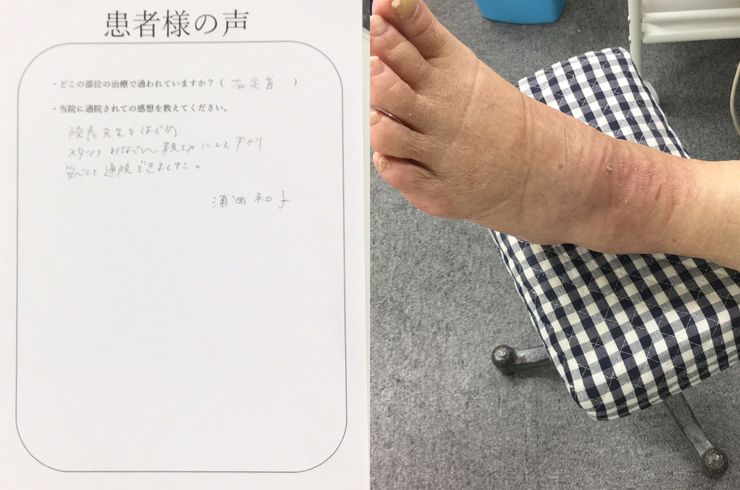 患者様の声
・どこの部位の治療で通われていますか？（ 右足首 ）
・当院に通院されての感想を教えてください。
院長先生をはじめ
スタッフみなさん親切にして下さり
安心して通院できました。
浦田和子